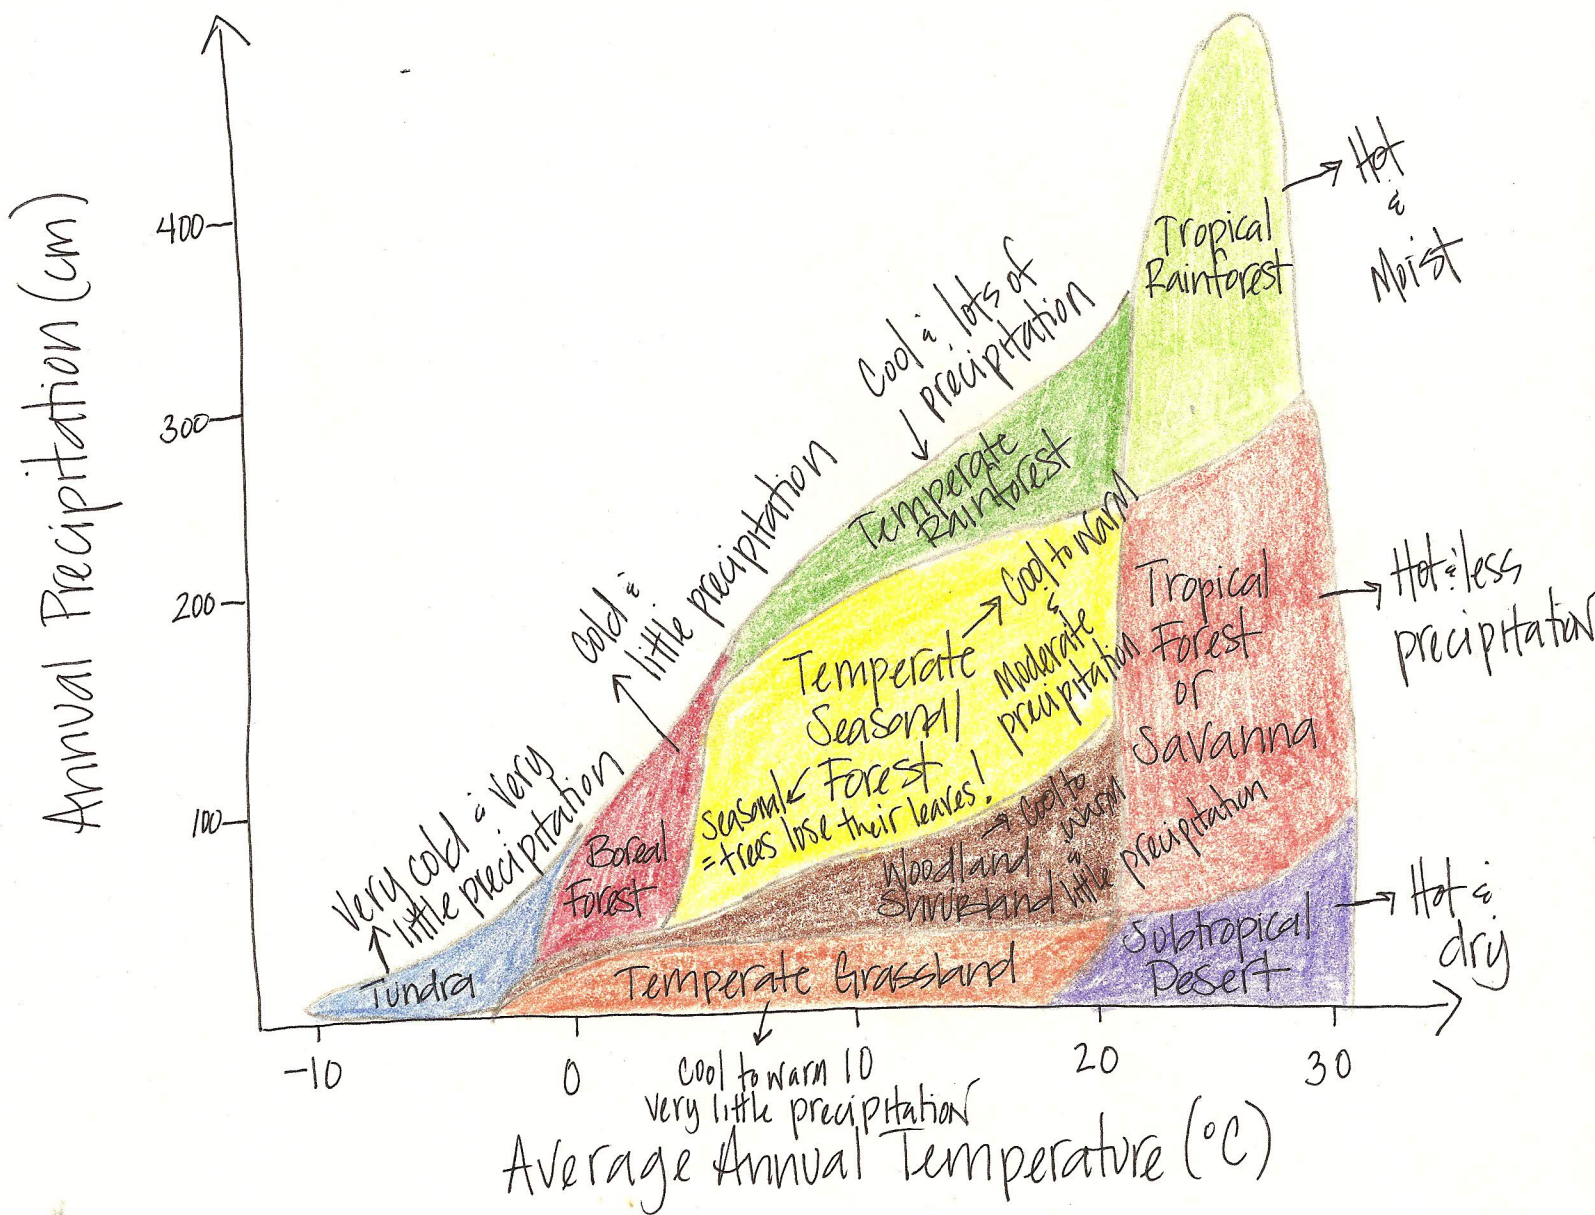 Annual Precipitation (cm)
400
300
200
100
Tropical
Rainforest
Hot
&
Moist
Cool & lots of
precipitation
Temperate
Rainforest
Cold &
little precipitation
Cool to warm
&
Moderate
precipitation
Temperate
Seasonal
Forest
Seasonal
= trees lose their leaves!
Tropical
Forest
or
Savanna
Hot & less
precipitation
Very cold & very
little precipitation
Boreal
Forest
Woodland
Shrubland
Cool to
warm
&
little precipitation
Tundra
Temperate Grassland
Subtropical
Desert
Hot &
dry
-10
0
10
20
30
Cool to warm
very little precipitation
Average Annual Temperature (°C)